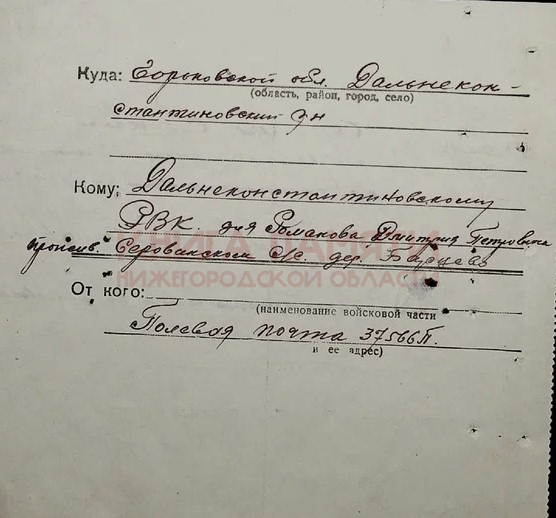 Куда: Горьковской обл. Дальнекон-
(область, район, город, село)
стантиновский р-н
Кому: Дальнеконстантиновскому
РВК для Романова Дмитрия Петровича
прожив. с/с. дер.
КНИГА ПАМЯТИ
НИЖЕГОРОДСКОЙ ОБЛАСТИ
От кого:
(наименование войсковой части
Полевая почта 37566П.
и ее адрес)